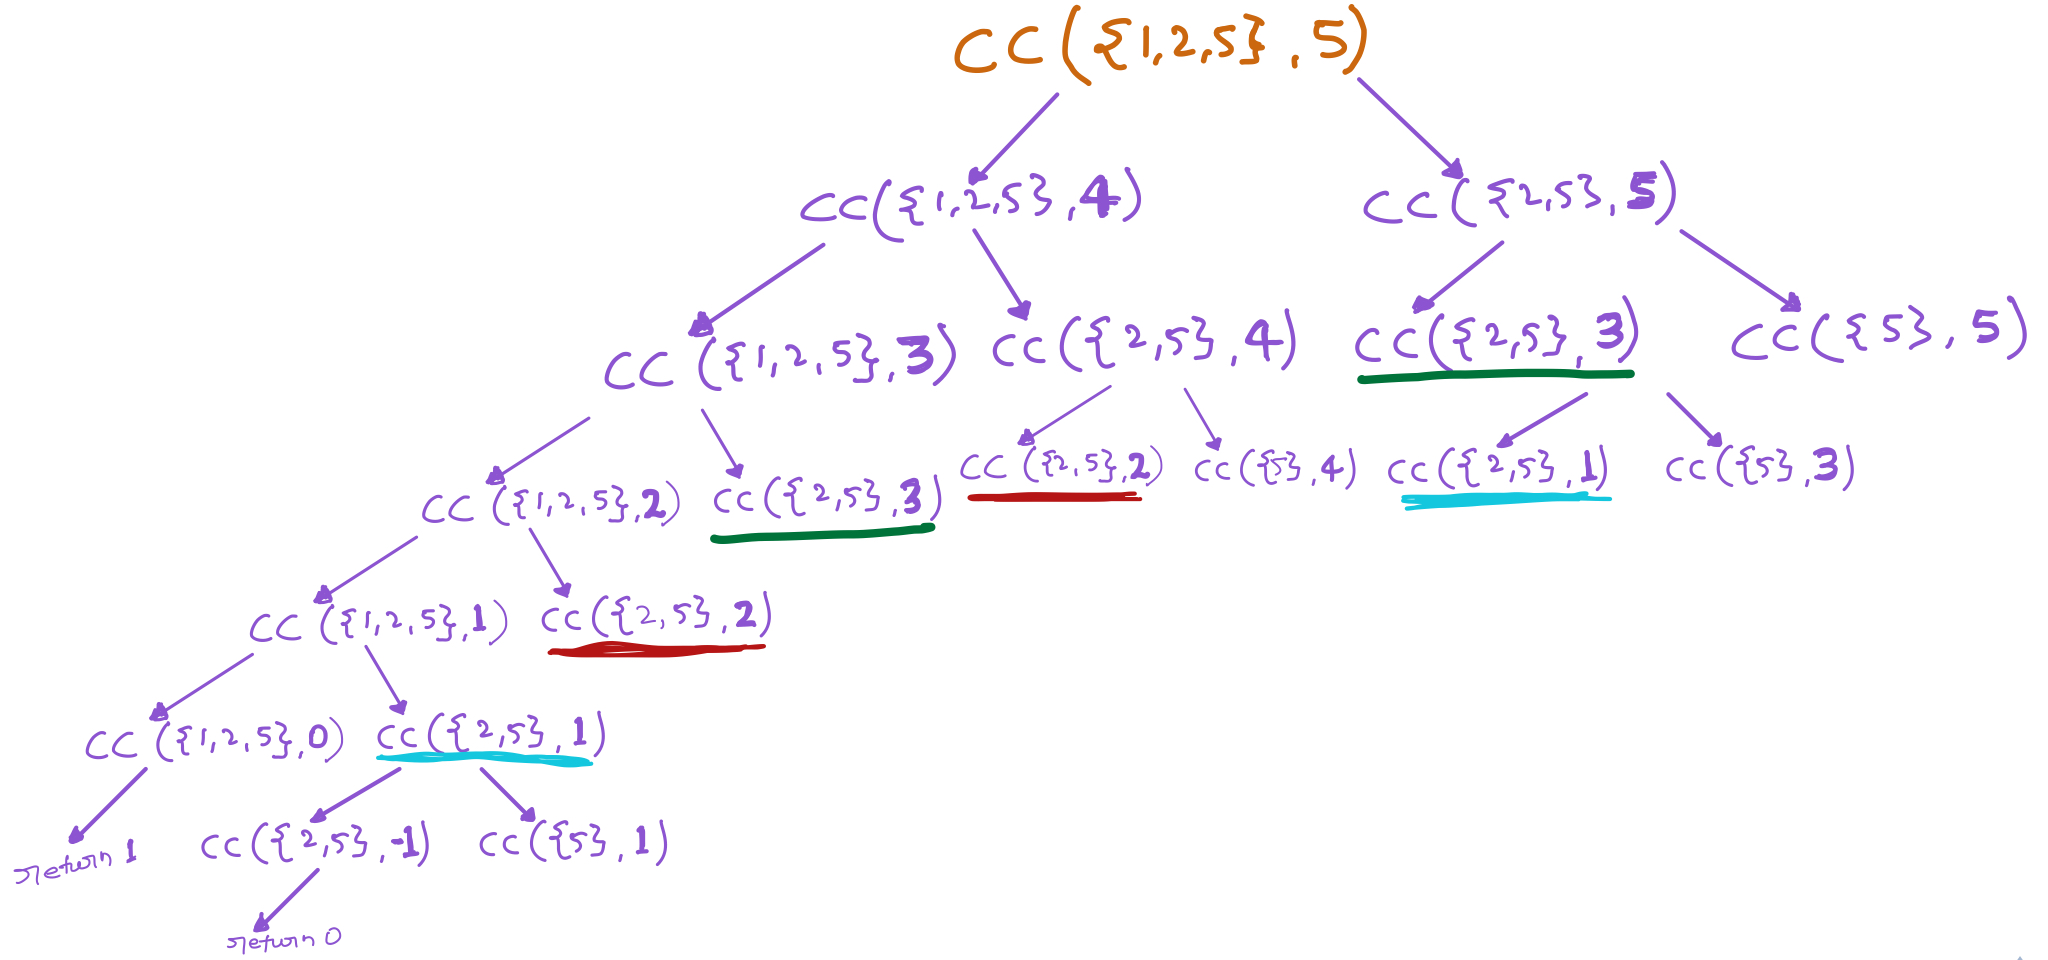 CC({1,2,5},5)
CC({1,2,5},4)
CC({2,5},5)
CC({1,2,5},3)
CC({2,5},4)
CC({2,5},3)
CC({5},5)
CC({1,2,5},2)
CC({2,5},3)
CC({2,5},2)
CC({5},4)
CC({2,5},1)
CC({5},3)
CC({1,2,5},1)
CC({2,5},2)
CC({1,2,5},0)
CC({2,5},1)
return 1
CC({2,5},-1)
CC({5},1)
return 0